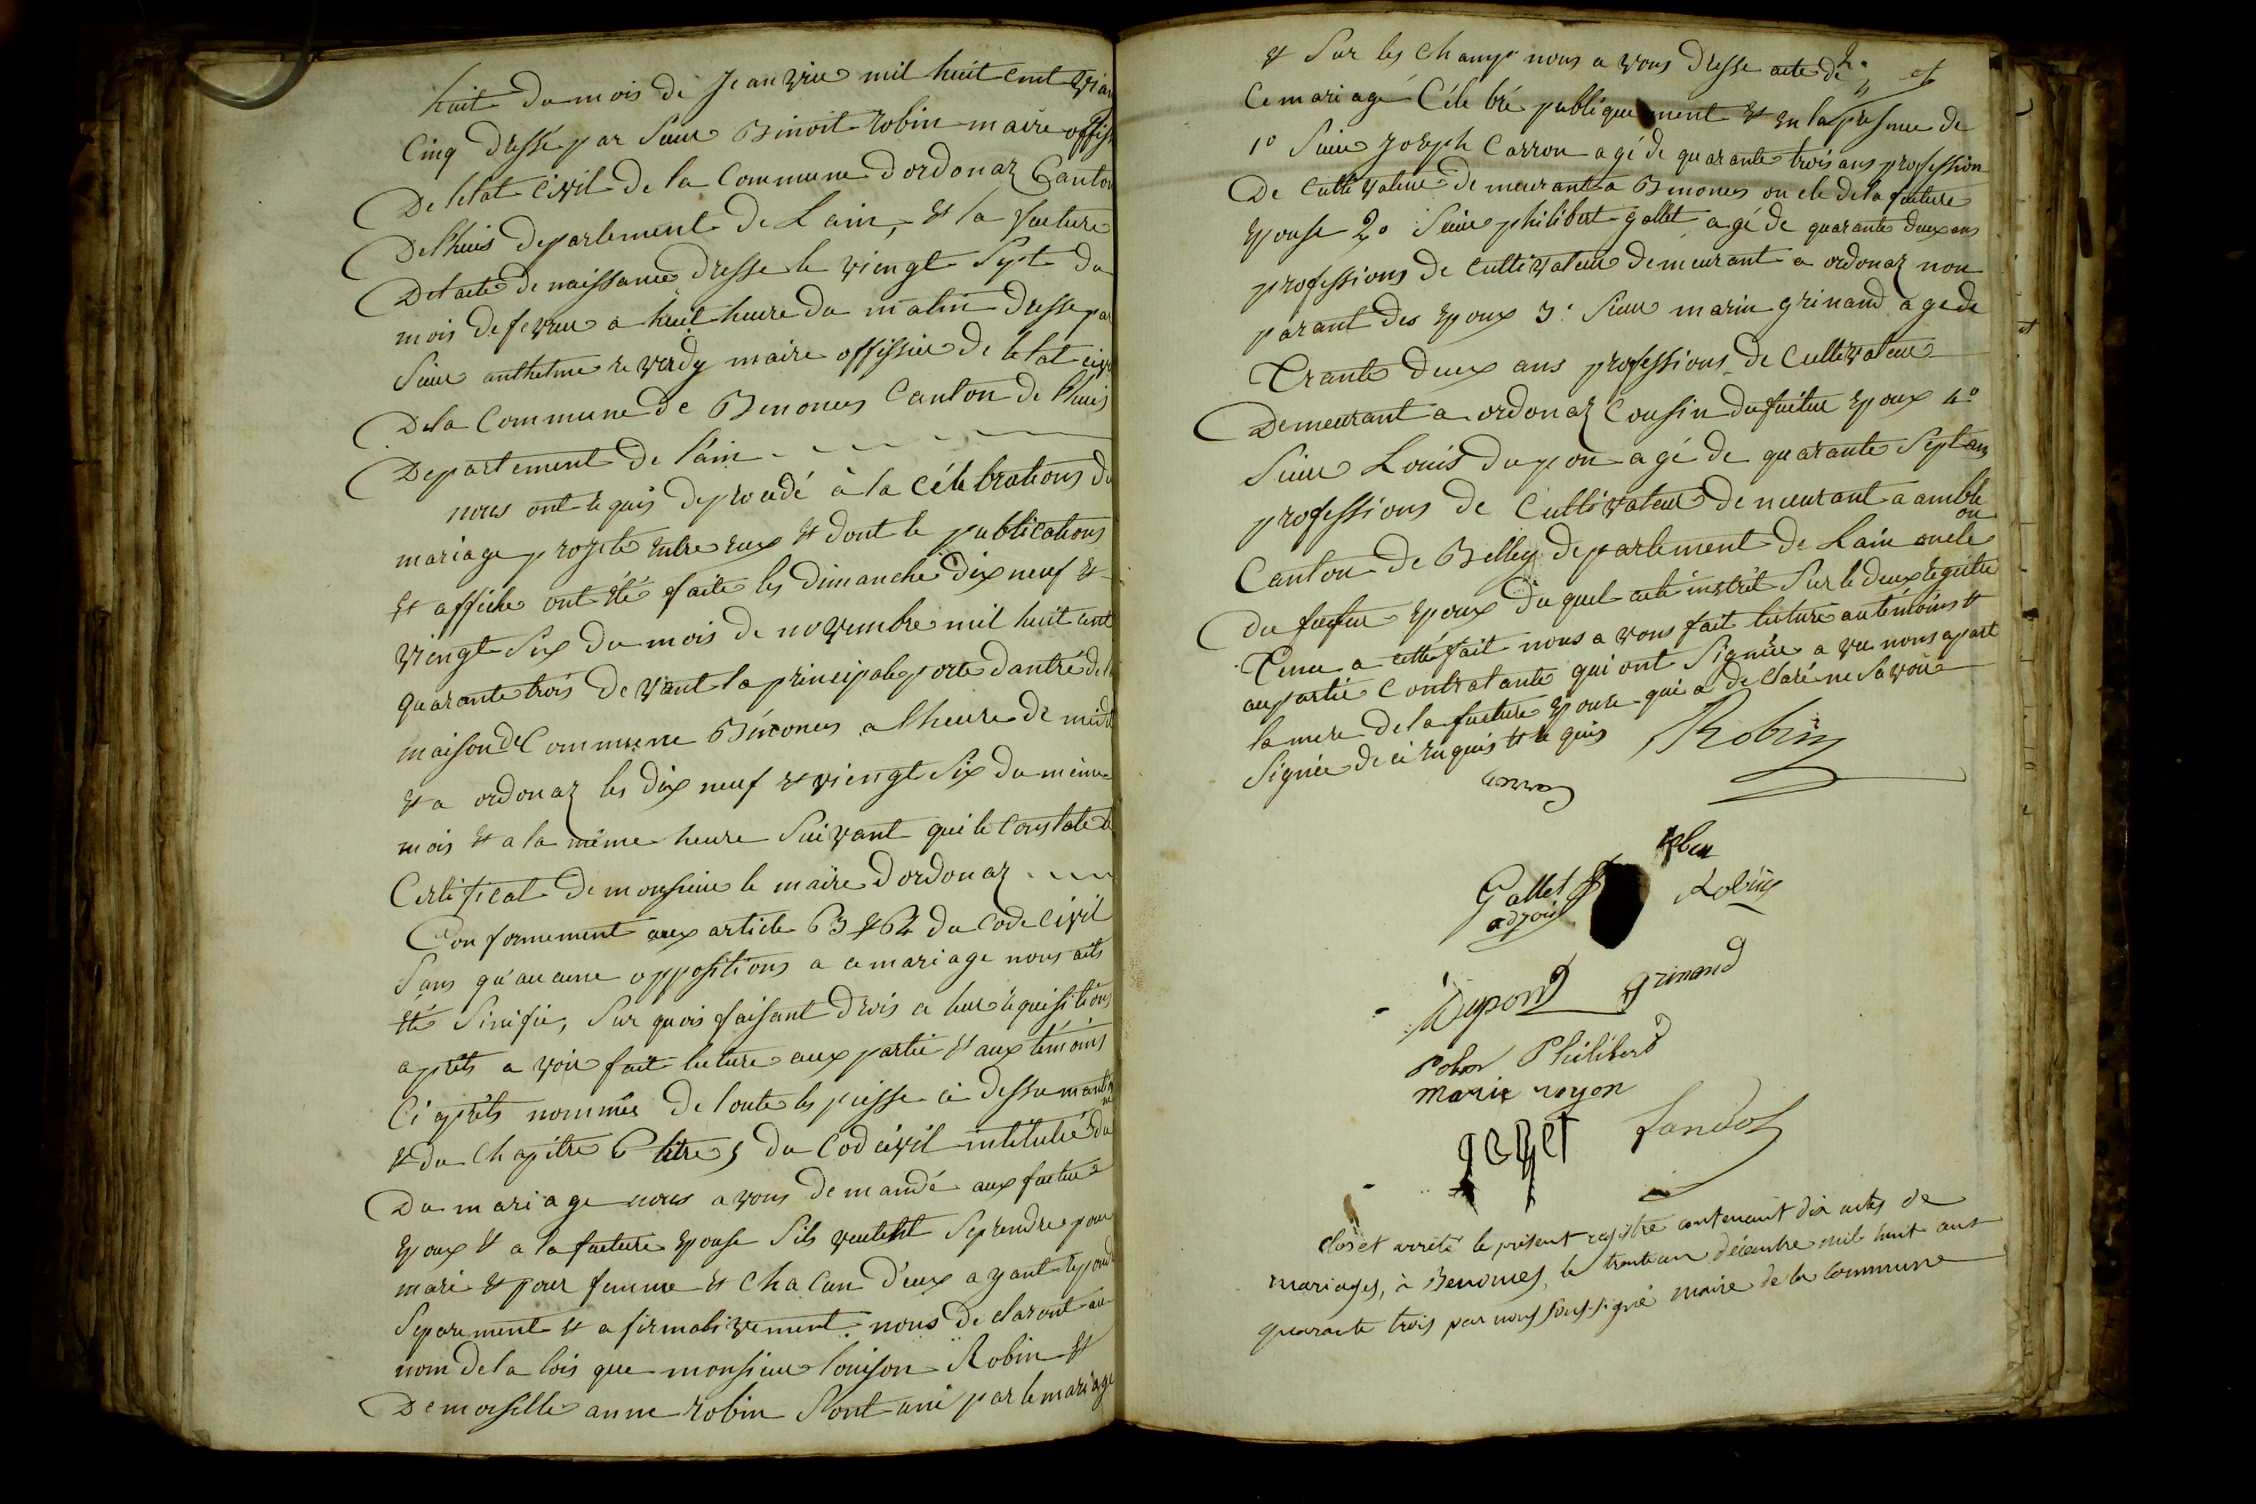 huit du mois de Jeanvier mil huit cent
Cinq dressé par Sieur Binoit Robin maire
De letat civil de la Commune dordonaz Canton
De lhuis departement de Lain, et la fueture
Delacte de naissance dresse le viengt Sept du
mois de fevrier a huit heure du matin dresse par
Sieur anthelme reverdy maire offissier de letat
Dela Commune de Benonces Canton de lhuis
Departement de l'ain
nous ont requis de procedé à la célébrations du
mariage projeté entre eux et dont le publications
et affiche ont été faite les dimanche dix neuf et
viengt Six du mois de novembre mil huit cent
quarante trois devant la principale porte dantré de la
maison de Commune Bénonces a lheure de midi
et a ordonaz les dix neuf et viengt Six du même
mois et a la même heure Suivant qui le constate le
Certificat de monsieur le maire dordonaz
Conformement aux article 63 et 64 du code civil
Sans qu'aucune oppositions a ce mariage nous aits
été Sinifié, Sur quois faisant drois a leur requisitions
aprêts avoir fait lecture aux partie et aux témoins
Ci aprêts nommés de toute les piesse ci dessu
et du Chapitre 6 titre 5 du Cod civil intitulé du
Du mariage nous avons demandé aux fueture
Epoux et a la fueture Epouse Sils veulent Seprendre pour
mari et pour femme et chacun d'eux ayant repondu
Separement et afirmativement nous declaront au
nom dela lois que monsieur louison Robin et
Demoiselle anne Robin Sont uni par le mariage
et Sur les champs nous avons dresse acte de
Ce mariage Célébré publiquement et en la presence de
1º Sieur Joseph Carron agé de quarante trois ans profession
De Cultivateur demeurant a Benonces oncle dela fueture
Epouse 2º Sieur philibert gallet agé de quarante deux ans
professions de Cultivateur demeurant a ordonaz non
parant des Epoux 3º Sieur marin grinand agé de
Trante deux ans professions de Cultivateur
Demeurant a ordonaz Cousin du fuetur Epoux 4º
Sieur Louis dupon agé de quarante Sept ans
professions de Cultivateur demeurant a
Canton de Belley departement de Lain oncle
Du fuetur Epoux du quel acte inscrit Sur le deux registre
Tenu a cette fait nous avons fait lecture au témoins et
au partie Contratante qui ont Signée avec nous apart
la mere dela fueture Epouse qui a declaré ne Savoir
Signée de ci enquis et requis
Robin
carron
Gallet
adjoint
Robin
Dupond grinand
Robin Philibert
marie royon
Landoz
clos et arrêté le présent registre contenant dix actes de
mariages, à Benonces, le trente un décembre mil huit cent
quarante trois par nous soussigné maire de la commune